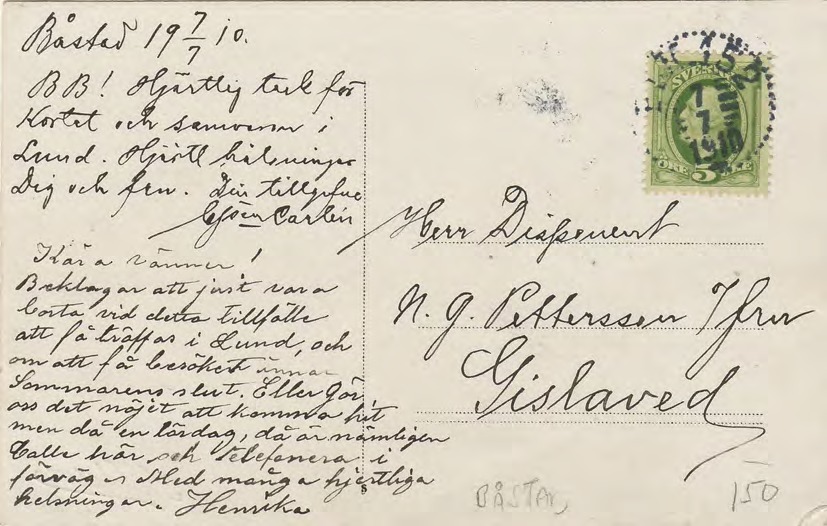 Båstad 19 7/7 10.
BB! Hjärtlig tack för
Kortet och samvaron i
Lund. Hjärtl hälsningar
Dig och fru. Din tillgifne
Carlén
Kära vänner!
Beklagar att just vara
borta vid detta tillfälle
att få träffas i Lund, och
om att få besöket innan
Sommarens slut. Eller gör
oss det nöjet att komma hit
men då en lördag, då är nämligen
Calle här och telefonera i
förväg. Med många hjertliga
helsningar. Henrika
SVERIGE
152
7
7
1910
ÖRE 5
Herr Disponent
N. G. Pettersson
Gislaved
BÅSTAD
150